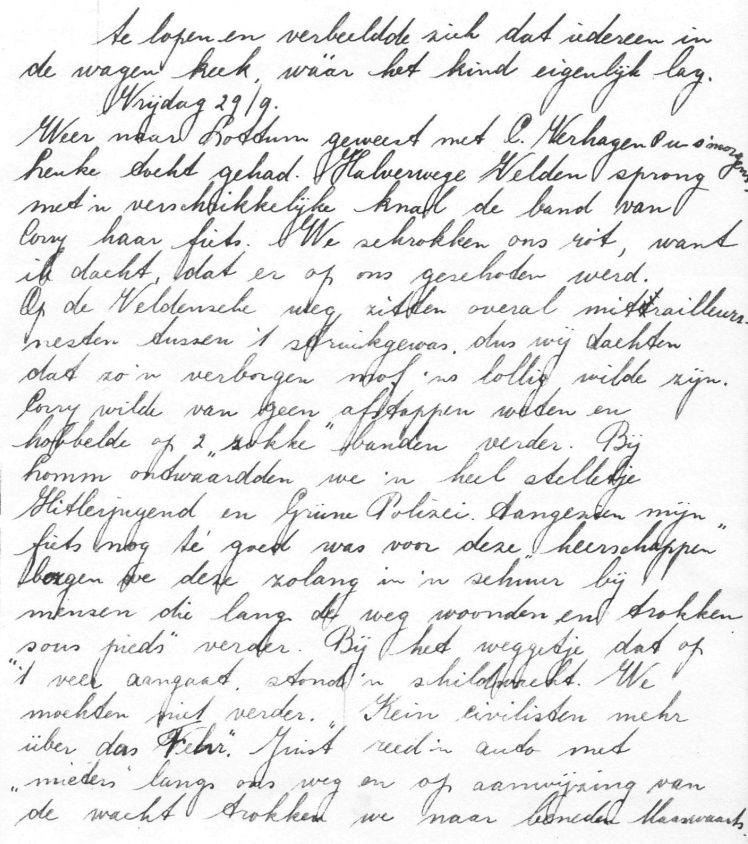 te lopen en verbeeldde zich dat iedereen in
de wagen keek, wáár het kind eigenlijk lag.
Vrijdag 29/9.
Weer naar Lottum geweest met C. Verhagen s'morgens
henke tocht gehad. Halverwege Velden sprong
met 'n verschrikkelijke knal de band van
Corry haar fiets. We schrokken ons rot, want
ik dacht, dat er op ons geschoten werd.
Op de Veldensche weg zitten overal mitrailleurs-
nesten tussen 't struikgewas, dus wij dachten
dat zo'n verborgen mof 'ns lollig wilde zijn.
Corry wilde van geen afstappen weten en
hobbelde op 2 „zokke" banden verder. Bij
homm ontwaardden we 'n heel stelletje
Hitlerjugend en Grüne Polizei. Aangezien mijn
fiets nog té goed was voor deze „heerschappen"
borgen we deze zolang in 'n schuur bij
mensen die lang de weg woonden en trokken
„sous pieds" verder. Bij het weggetje dat op
't veer aangaat, stond 'n schildwacht. We
mochten niet verder. „Kein civilisten mehr
über das Fehr". Juist reed 'n auto met
„mieters" langs ons weg en op aanwijzing van
de wacht trokken we naar beneden Maaswaarts.